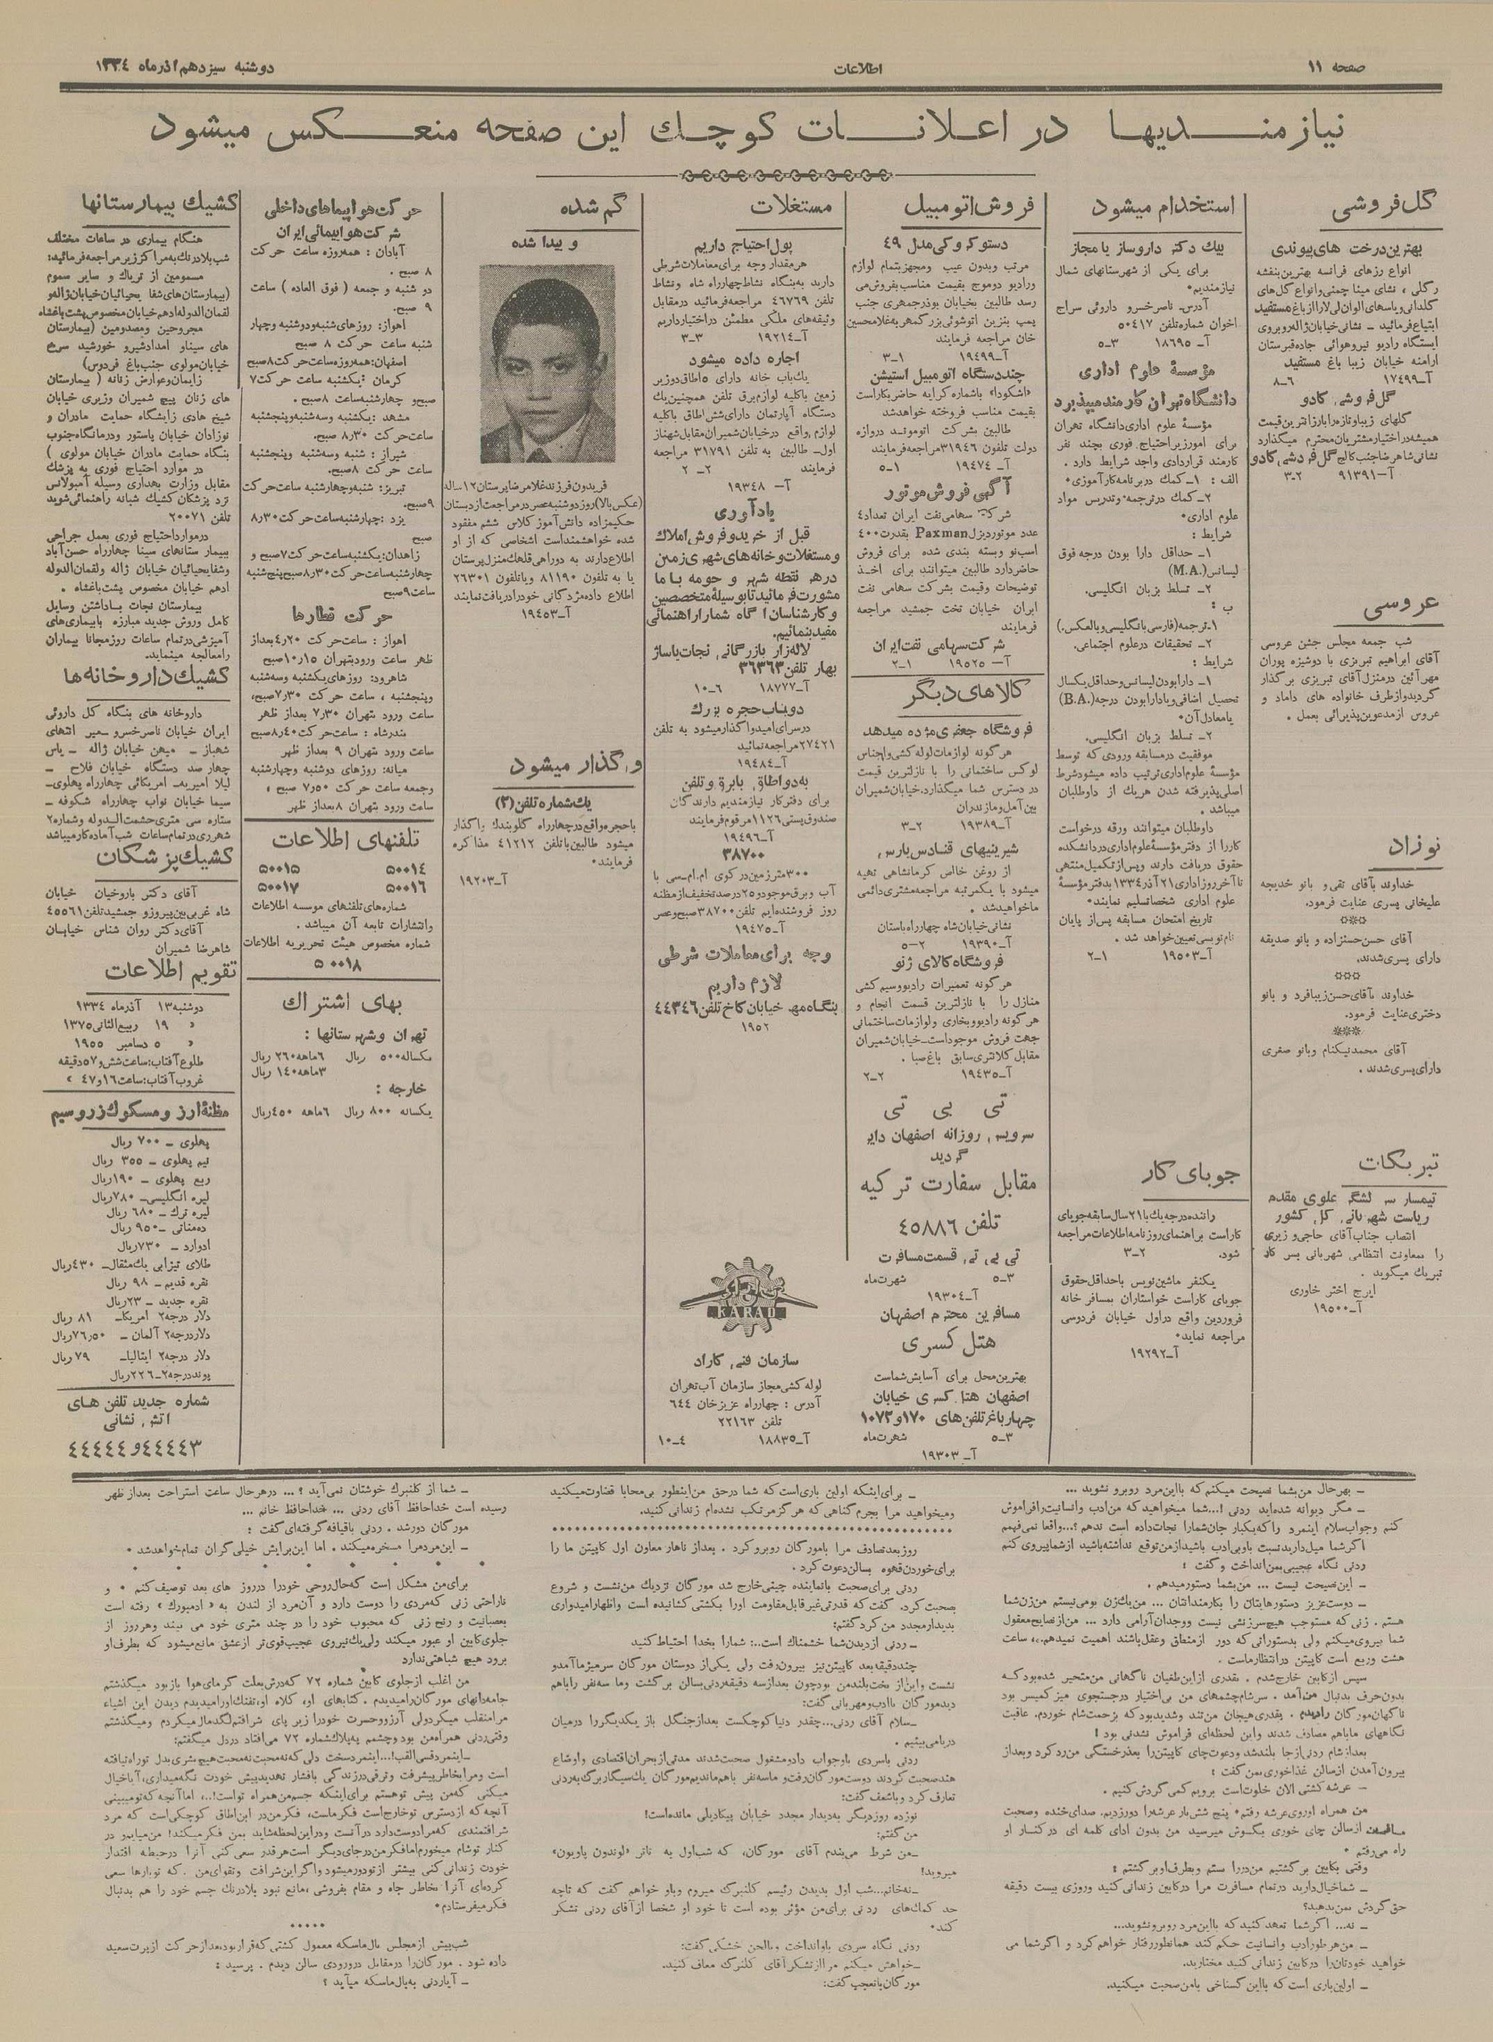 صفحه ۱۱
اطلاعات
دوشنبه سیزدهم آذرماه ۱۳۳۴
نیازمندیها در اعلانات کوچک این صفحه منعکس میشود
گل فروشی
بهترین درخت های پیوندی
انواع رزهای فرانسه بهترین بنفشه
رگلی ، نشای مینا چمنی وانواع گل‌های
گلدانی ویاسهای الوان لی لارا از باغ مستفید
ابتیاع فرمائید – نشانی خیابان ژاله روبروی
ایستگاه رادیو نیروهوائی جاده قبرستان
ارامنه خیابان زیبا باغ مستفید
آ–۱۷۴۹۹ ۶–۸
گل فروشی کادو
گلهای زیبا وتازه را با نازلترین قیمت
همیشه در اختیار مشتریان محترم میگذارد
نشانی شاهرضا جنب کالج گل فروشی کادو
آ–۹۱۳۹۱ ۲–۳
عروسی
شب جمعه مجلس جشن عروسی
آقای ابراهیم تبریزی با دوشیزه پوران
مهرآئین در منزل آقای تبریزی برگذار
گردید واز طرف خانواده های داماد و
عروس از مدعوین پذیرائی بعمل .
نوزاد
خداوند بآقای تقی و بانو خدیجه
علیخانی پسری عنایت فرمود.
آقای حسن حسنزاده و بانو صدیقه
دارای پسری شدند.
خداوند بآقای حسن زیبافرد و بانو
دختری عنایت فرمود.
آقای محمد نیکنام وبانو صغری
دارای پسری شدند .
تبریکات
تیمسار سرلشگر علوی مقدم
ریاست شهربانی کل کشور
انتصاب جناب آقای حاجی وزیری
را بمعاونت انتظامی شهربانی بسر کار
تبریک میگوید .
ایرج اختر خاوری
آ–۱۹۵۰۰
استخدام میشود
بیک دکتر داروساز یا مجاز
برای یکی از شهرستانهای شمال
نیازمندیم.
آدرس– ناصرخسرو داروئی سراج
اخوان شماره تلفن ۵۰۴۱۷
آ– ۱۸۶۹۵ ۳–۵
مؤسسهٔ علوم اداری
دانشگاه تهران کارمند میپذیرد
مؤسسهٔ علوم اداری دانشگاه تهران
برای امور زیر احتیاج فوری بچند نفر
کارمند قراردادی واجد شرایط دارد .
الف : ۱–کمک در برنامه کارآموزی.
۲–کمک در ترجمه وتدریس مواد
علوم اداری.
شرایط :
۱– حداقل دارا بودن درجه فوق
لیسانس(M.A.)
۲– تسلط بزبان انگلیسی.
ب :
۱–ترجمه(فارسی بانگلیسی وبالعکس.)
۲– تحقیقات در علوم اجتماعی.
شرایط :
۱–دارا بودن لیسانس وحداقل یکسال
تحصیل اضافی ویا دارا بودن درجه(B.A.)
یا معادل آن.
۲– تسلط بزبان انگلیسی.
موفقیت در مسابقه ورودی که توسط
مؤسسهٔ علوم اداری ترتیب داده میشود شرط
اصلی پذیرفته شدن هریک از داوطلبان
میباشد .
داوطلبان میتوانند ورقه درخواست
کار را از دفتر مؤسسهٔ علوم اداری در دانشکده
حقوق دریافت دارند وپس از تکمیل منتهی
تا آخر روز اداری ۲۱ آذر ۱۳۳۴ بدفتر مؤسسهٔ
علوم اداری شخصاً تسلیم نمایند.
تاریخ امتحان مسابقه پس از پایان
نام نویسی تعیین خواهد شد .
آ–۱۹۵۰۳ ۱–۲
جویای کار
راننده درجه یک با ۲۱ سال سابقه جویای
کار است براهنمای روزنامه اطلاعات مراجعه
شود. ۲–۳
یکنفر ماشین نویس با حداقل حقوق
جویای کار است خواستاران بمسافرخانه
فروردین واقع در اول خیابان فردوسی
مراجعه نماید.
آ–۱۹۲۹۲
فروش اتومبیل
دستو کروکی مدل ۴۹
مرتب وبدون عیب ومجهز بتمام لوازم
ورادیو دوموج بقیمت مناسب بفروش می
رسد طالبین بخیابان بوذرجمهری جنب
پمپ بنزین اتوشوئی بزرگمهر به غلامحسین
خان مراجعه فرمایند
آ–۱۹۴۹۹ ۱–۳
چند دستگاه اتومبیل استیشن
«اشکودا» باشماره کرایه حاضر بکار است
بقیمت مناسب فروخته خواهد شد
طالبین بشرکت اتوموتید دروازه
دولت تلفون ۳۱۹۴۶ مراجعه فرمایند
آ– ۱۹۴۷۴ ۱–۵
آگهی فروش موتور
شرکت سهامی نفت ایران تعداد ۴
عدد موتور دیزل Paxman بقدرت ۴۰۰
اسب نو وبسته بندی شده برای فروش
حاضر دارد طالبین میتوانند برای اخذ
توضیحات وقیمت بشرکت سهامی نفت
ایران خیابان تخت جمشید مراجعه
فرمایند
شرکت سهامی نفت ایران
آ–۱۹۵۲۵ ۱–۲
کالاهای دیگر
فروشگاه جعفری مژده میدهد
هرگونه لوازمات لوله کشی واجناس
لوکس ساختمانی را با نازلترین قیمت
در دسترس شما میگذارد. خیابان شمیران
بین آمل ومازندران
آ–۱۹۳۸۹ ۲–۳
شیرینیهای قنادی پارس
از روغن خالص کرمانشاهی تهیه
میشود با یکمرتبه مراجعه مشتری دائمی
ما خواهید شد .
نشانی خیابان شاه چهارراه باستان
آ–۱۹۳۹۰ ۲–۵
فروشگاه کالای ژنو
هرگونه تعمیرات رادیو وسیم کشی
منازل را با نازلترین قسمت انجام و
هرگونه رادیو وبخاری ولوازمات ساختمانی
جهت فروش موجود است–خیابان شمیران
مقابل کلانتری سابق باغ صبا .
آ–۱۹۴۳۵ ۲–۲
تی بی تی
سرویس روزانه اصفهان دایر
گردید
مقابل سفارت ترکیه
تلفن ۴۵۸۸۶
تی بی تی قسمت مسافرت
۳–۵ شهرت ماه
آ–۱۹۳۰۴
مسافرین محترم اصفهان
هتل کسری
بهترین محل برای آسایش شماست
اصفهان هتل کسری خیابان
چهارباغ تلفن های ۱۷۰ و ۱۰۷۳
۳–۵ شهرت ماه
آ– ۱۹۳۰۳
مستغلات
پول احتیاج داریم
هر مقدار وجه برای معاملات شرطی
دارید به بنگاه نشاط چهارراه شاه ونشاط
تلفن ۴۶۷۶۹ مراجعه فرمائید در مقابل
وثیقه های ملکی مطمئن در اختیار داریم
آ–۱۹۲۱۴ ۳–۳
اجاره داده میشود
یک باب خانه دارای ۵ اطاق دو زیر
زمین با کلیه لوازم برق تلفن همچنین یک
دستگاه آپارتمان دارای شش اطاق با کلیه
لوازم واقع در خیابان شمیران مقابل شهناز
اول– طالبین به تلفن ۳۱۷۹۱ مراجعه
فرمایند ۲– ۲
آ– ۱۹۳۴۸
یادآوری
قبل از خرید و فروش املاک
ومستغلات وخانه های شهری زمین
در هر نقطه شهر و حومه با ما
مشورت فرمائید تا بوسیلهٔ متخصصین
وکارشناسان آگاه شمارا راهنمائی
مفید بنمائیم.
لاله زار بازرگانی نجات پاساژ
بهار تلفن ۳۶۳۶۳
آ–۱۸۷۷۷ ۶–۱۰
دوباب حجره بزرک
در سرای امید واگذار میشود به تلفن
۲۷۴۲۱ مراجعه نمائید
آ–۱۹۴۸۴
به دو اطاق بابرق وتلفن
برای دفتر کار نیازمندیم دارندگان
صندوق پستی ۱۱۲۶ مرقوم فرمایند
آ–۱۹۴۹۶
۳۸۷۰۰
۳۰۰ متر زمین در کوی ام.ام–سی با
آب وبرق موجود و ۲۵ درصد تخفیف از مظنه
روز فروشنده ایم تلفن ۳۸۷۰۰ صبح وعصر
آ–۱۹۴۷۵
وجه برای معاملات شرطی
لازم داریم
بنگاه مهر خیابان کاخ تلفن ۴۴۳۴۶
۱۹۵۲
کارادی
KARAD
سازمان فنی کاراد
لوله کشی مجاز سازمان آب تهران
آدرس : چهارراه عزیزخان ۶۴۴
تلفن ۲۲۱۶۳
آ–۱۸۸۳۵ ۴–۱۰
گم شده
و پیدا شده
فریدون فرزند غلامرضا پرستان ۱۲ ساله
(عکس بالا) روز دوشنبه عصر در مراجعت از دبستان
حکیم زاده دانش آموز کلاس ششم مفقود
شده خواهشمند است اشخاصی که از او
اطلاع دارند به دوراهی قلهک منزل پرستان
یا به تلفون ۸۱۱۹۰ ویا تلفون ۲۲۳۰۱
اطلاع داده مژدگانی خود را دریافت نمایند
آ–۱۹۴۵۳
واگذار میشود
یک شماره تلفن (۳)
با حجره واقع در چهارراه گلوبندک واگذار
میشود طالبین با تلفن ۴۱۲۱۲ مذاکره
فرمایند.
آ–۱۹۲۰۳
حرکت هواپیماهای داخلی
شرکت هواپیمائی ایران
آبادان : همه روزه ساعت حرکت
۸ صبح .
دوشنبه و جمعه ( فوق العاده ) ساعت
۹ صبح.
اهواز: روزهای شنبه ودوشنبه وچهار
شنبه ساعت حرکت ۸ صبح
اصفهان: همه روزه ساعت حرکت ۸ صبح
کرمان : یکشنبه ساعت حرکت ۷
صبح و چهارشنبه ساعت ۸ صبح .
مشهد : یکشنبه وسه شنبه وپنجشنبه
ساعت حرکت ۸٫۳۰ صبح.
شیراز : شنبه وسه شنبه وپنجشنبه
ساعت حرکت ۸ صبح.
تبریز: شنبه وچهارشنبه ساعت حرکت
۹ صبح.
یزد :چهارشنبه ساعت حرکت ۸٫۳۰
صبح
زاهدان:یکشنبه ساعت حرکت ۷ صبح و
چهارشنبه ساعت حرکت ۸٫۳۰ صبح پنج شنبه
ساعت ۹ صبح
حرکت قطارها
اهواز : ساعت حرکت ۴٫۲۰ بعداز
ظهر ساعت ورود بتهران ۱۰٫۱۵ صبح
شاهرود: روزهای یکشنبه وسه شنبه
وپنجشنبه ، ساعت حرکت ۷٫۳۰ صبح،
ساعت ورود بتهران ۷٫۳۰ بعداز ظهر
بندرشاه : ساعت حرکت ۸٫۴۰ صبح
ساعت ورود شهران ۹ بعداز ظهر
میانه: روزهای دوشنبه وچهارشنبه
وجمعه ساعت حرکت ۷٫۵۰ صبح ،
ساعت ورود شهران ۸ بعداز ظهر
تلفنهای اطلاعات
۵۰۰۱۴ ۵۰۰۱۵
۵۰۰۱۶ ۵۰۰۱۷
شماره های تلفنهای موسسه اطلاعات
وانتشارات تابعه آن میباشد .
شماره مخصوص هیئت تحریریه اطلاعات
۵۰۰۱۸
بهای اشتراک
تهران وشهرستانها :
یکساله ۵۰۰ ریال ۶ماهه ۲۶۰ ریال
۳ماهه ۱۴۰ ریال
خارجه :
یکساله ۸۰۰ ریال ۶ماهه ۴۵۰ ریال
کشیک بیمارستانها
هنگام بیماری در ساعات مختلف
شب بلادرنگ به مراکز زیر مراجعه فرمائید:
مسمومین از تریاک و سایر سموم
(بیمارستان های شفا یحیائیان خیابان ژاله و
لقمان الدوله ادهم خیابان مخصوص پشت باغشاه
مجروحین ومصدومین (بیمارستان
های سینا و امداد شیر و خورشید سرخ
خیابان مولوی جنب باغ فردوس)
زایمان وعوارض زنانه ( بیمارستان
های زنان پیچ شمیران وزیری خیابان
شیخ هادی زایشگاه حمایت مادران و
نوزادان خیابان پاستور ودرمانگاه جنوب
بنگاه حمایت مادران خیابان مولوی )
در موارد احتیاج فوری به پزشک
مقابل وزارت بهداری وسیله آمبولانس
نزد پزشکان کشیک شبانه راهنمائی شوید
تلفن ۲۰۰۷۱
در موارد احتیاج فوری بعمل جراحی
بیمارستانهای سینا چهارراه حسن آباد
وشفا یحیائیان خیابان ژاله ولقمان الدوله
ادهم خیابان مخصوص پشت باغشاه .
بیمارستان نجات با داشتن وسایل
کامل وروش جدید مبارزه با بیماری های
آمیزشی در تمام ساعات روز مجاناً بیماران
را معالجه مینماید.
کشیک داروخانه ها
داروخانه های بنگاه کل داروئی
ایران خیابان ناصرخسرو – میر انتهای
شهباز – میهن خیابان ژاله – یاس
چهارصد دستگاه خیابان فلاح –
لیلا امیریه– امریکائی چهارراه پهلوی–
سیما خیابان نواب چهارراه شکوفه –
ستاره سی متری حشمت الدوله وشماره ۲
شهر ری در تمام ساعات شب آماده کار میباشد
کشیک پزشکان
آقای دکتر باروخیان خیابان
شاه غربی بین پیروز و جمشید تلفن ۴۵۵۶۱
آقای دکتر روان شناس خیابان
شاهرضا شمیران
تقویم اطلاعات
دوشنبه ۱۳ آذرماه ۱۳۳۴
» ۱۹ ربیع الثانی ۱۳۷۵
» ۵ دسامبر ۱۹۵۵
طلوع آفتاب : ساعت شش و ۵۷ دقیقه
غروب آفتاب : ساعت ۱۶ و ۴۷ »
مظنهٔ ارز و مسکوک زر و سیم
پهلوی – ۷۰۰ ریال
نیم پهلوی – ۳۵۵ ریال
ربع پهلوی – ۱۹۰ ریال
لیره انگلیسی– ۷۸۰ ریال
لیره ترک – ۶۸۰ ریال
ده مناتی – ۹۵۰ ریال
ادوارد – ۷۳۰ ریال
طلای تیزابی یک مثقال– ۴۳۰ ریال
نقره قدیم – ۹۸ ریال
نقره جدید – ۲۳ ریال
دلار درجه ۲ امریکا– ۸۱ ریال
دلار درجه ۲ آلمان – ۷۶٫۵۰ ریال
دلار درجه ۲ ایتالیا– ۷۹ ریال
پوند درجه ۲–۲۲۶ ریال
شماره جدید تلفن های
آتش نشانی
۴۴۴۴۳ و ۴۴۴۴۴
– بهرحال من بشما نصیحت میکنم که با این مرد روبرو نشوید ...
– مگر دیوانه شده اید ردنی !...شما میخواهید که من ادب وانسانیت را فراموش
کنم وجواب سلام اینمرد را که یکبار جان شما را نجات داده است ندهم ؟...واقعا نمی فهمم
اگر شما میل دارید نسبت باو بی ادب باشید از من توقع نداشته باشید از شما پیروی کنم
ردنی نگاه عجیبی بمن انداخت و گفت :
– این نصیحت نیست ... من بشما دستور میدهم .
– دوست عزیز دستورهایتان را بکارمندانتان ... من یک زن بومی نیستم من زن شما
هستم . زنی که مستوجب هیچ سرزنشی نیست ووجدان آرامی دارد ... من از نصایح معقول
شما پیروی میکنم ولی بدستوراتی که دور از منطق وعقل باشند اهمیت نمیدهم... ساعت
هشت وربع است کاپیتن در انتظار ماست .
سپس از کابین خارج شدم . بقدری از این طغیان ناگهانی من متحیر شده بود که
بدون حرف بدنبال من آمد . سر شام چشمهای من بی اختیار در جستجوی میز کمیس بود
ناگهان مورگان را دیدم . بقدری هیجان من تند وشدید بود که بزحمت شام خوردم. عاقبت
نگاههای ما باهم مصادف شدند واین لحظه ای فراموش نشدنی بود !
بعد از شام ردنی از جا بلند شد ودعوت چای کاپیتن را بعذر خستگی من رد کرد وبعد از
بیرون آمدن از سالن غذاخوری بمن گفت :
– عرشه کشتی الان خلوت است برویم کمی گردش کنیم .
من همراه او روی عرشه رفتم. پنج شش بار عرشه را دور زدیم. صدای خنده وصحبت
مسافرین از سالن چای خوری بگوش میرسید من بدون ادای کلمه ای در کنار او
راه میرفتم .
وقتی بکابین برگشتیم من در را بستم وبطرف او برگشتم :
– شما خیال دارید در تمام مسافرت مرا در کابین زندانی کنید وروزی بیست دقیقه
حق گردش بمن بدهید؟
– نه... اگر شما تعهد کنید که با این مرد روبرو نشوید...
– من هر طور ادب وانسانیت حکم کند همانطور رفتار خواهم کرد و اگر شما می
خواهید خودتان را در کابین زندانی کنید مختارید.
– اولین باری است که با این گستاخی با من صحبت میکنید.
– برای اینکه اولین باری است که شما در حق من اینطور بی محابا قضاوت میکنید
ومیخواهید مرا بجرم گناهی که هرگز مرتکب نشده ام زندانی کنید.
روز بعد تصادف مرا با مورگان روبرو کرد . بعد از ناهار معاون اول کاپیتن ما را
برای خوردن قهوه بسالن دعوت کرد.
ردنی برای صحبت با نماینده چینی خارج شد مورگان نزدیک من نشست و شروع
بصحبت کرد. گفت که قدرتی غیر قابل مقاومت اورا بکشتی کشانیده است واظهار امیدواری
بدیدار مجدد من کرد گفتم:
– ردنی از دیدن شما خشمناک است..: شما را بخدا احتیاط کنید
چند دقیقه بعد کاپیتن نیز بیرون رفت ولی یکی از دوستان مورگان سر میز ما آمد و
نشست واین از بخت بلند من بود چون بعد از سه دقیقه ردنی بسالن برگشت وما سه نفر را باهم
دید مورگان با ادب ومهربانی گفت:
–سلام آقای ردنی...چقدر دنیا کوچکست بعد از جنگل باز یکدیگر را در میان
دریا می بینیم .
ردنی با سردی باو جواب داد ومشغول صحبت شدند مدتی از بحران اقتصادی واوضاع
هند صحبت کردند دوست مورگان رفت و ما سه نفر باهم ماندیم مورگان یک سیگار برگ به ردنی
تعارف کرد وباشعف گفت:
نوزده روز دیگر به دیدار مجدد خیابان پیکادیلی مانده است!
من گفتم:
–من شرط می بندم آقای مورگان، که شب اول به تاتر «لوندون پاویون»
میروید!
–نه خانم...شب اول بدیدن رئیسم کلنبرک میروم وباو خواهم گفت که تا چه
حد کمکهای ردنی برای من مؤثر بوده است تا خود او شخصا از آقای ردنی تشکر
کند.
ردنی نگاه سردی باو انداخت وبا لحن خشکی گفت:
–خواهش میکنم مرا از تشکر آقای کلنبرک معاف کنید.
مورگان با تعجب گفت:
– شما از کلنبرک خوشتان نمی آید ؟ ... در هر حال ساعت استراحت بعد از ظهر
رسیده است خداحافظ آقای ردنی ... خداحافظ خانم ...
مورگان دور شد . ردنی باقیافه گرفته ای گفت :
– این مرد مرا مسخره میکند . اما این برایش خیلی گران تمام خواهد شد.
برای من مشکل است که حال روحی خود را در روز های بعد توصیف کنم . و
ناراحتی زنی که مردی را دوست دارد و آن مرد از لندن به « ادمبورک » رفته است
بعصبانیت و رنج زنی که محبوب خود را در چند متری خود می بیند وهر روز از
جلوی کابین او عبور میکند ولی یک نیروی عجیب قوی تر از عشق مانع میشود که بطرف او
برود هیچ شباهتی ندارد
من اغلب از جلوی کابین شماره ۷۲ که درش بعلت گرمای هوا باز بود میگذشتم
جامه دانهای مورگان را میدیدم . کتابهای او، کلاه او، تفنگ او را میدیدم دیدن این اشیاء
مرا منقلب میکرد ولی آرزو وحسرت خود را زیر پای شرافتم لگدمال میکردم ومیگذشتم
وقتی ردنی همراه من بود وچشمم به پلاک شماره ۷۲ می افتاد در دل میگفتم:
–اینمرد قسی القلب!...اینمرد سخت دلی که نه محبت نه محبت هیچ بشری بدل تو راه نیافته
است ومرا بخاطر پیشرفت وترقی در زندگی با فشار تهدید پیش خودت نگه میداری، آیا خیال
میکنی که من پیش تو هستم برای اینکه جسم من همراه تو است!... اما آنچه که تو میبینی
آنچه که از دسترس تو خارج است فکر ماست، فکر من در این اطاق کوچکی است که مرد
شرافتمندی که مرا دوست دارد در آنست ودر این لحظه شاید بمن فکر میکند! من میایم در
کنار تو شام میخورم اما فکر من در جای دیگر است هر قدر سعی کنی آنرا در حیطه اقتدار
خودت زندانی کنی بیشتر از تو دور میشود واگر این شرافت وتقوای من که تو بارها سعی
کرده ای آنرا بخاطر جاه و مقام بفروشی، مانع نبود بلادرنگ جسم خود را هم بدنبال
فکر میفرستادم.
شب پیش از مجلس بال ماسکه معمول کشتی که قرار بود بعد از حرکت از پرت سعید
داده شود . مورگان را در مقابل در ورودی سالن دیدم . پرسید :
– آیا ردنی به بال ماسکه میآید ؟